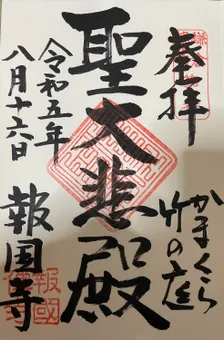 奉拝
かまくら
竹の庭
聖大悲殿
令和五年
八月十六日
報国寺
報國